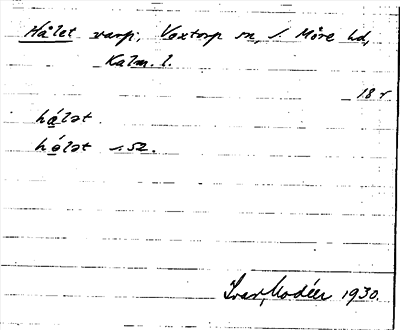 Hålet varp, Voxtorp sn, S. Möre hd,
Kalm. l.
18 r
hålət.
hólət s. 52.
Ivar Modéer 1930.